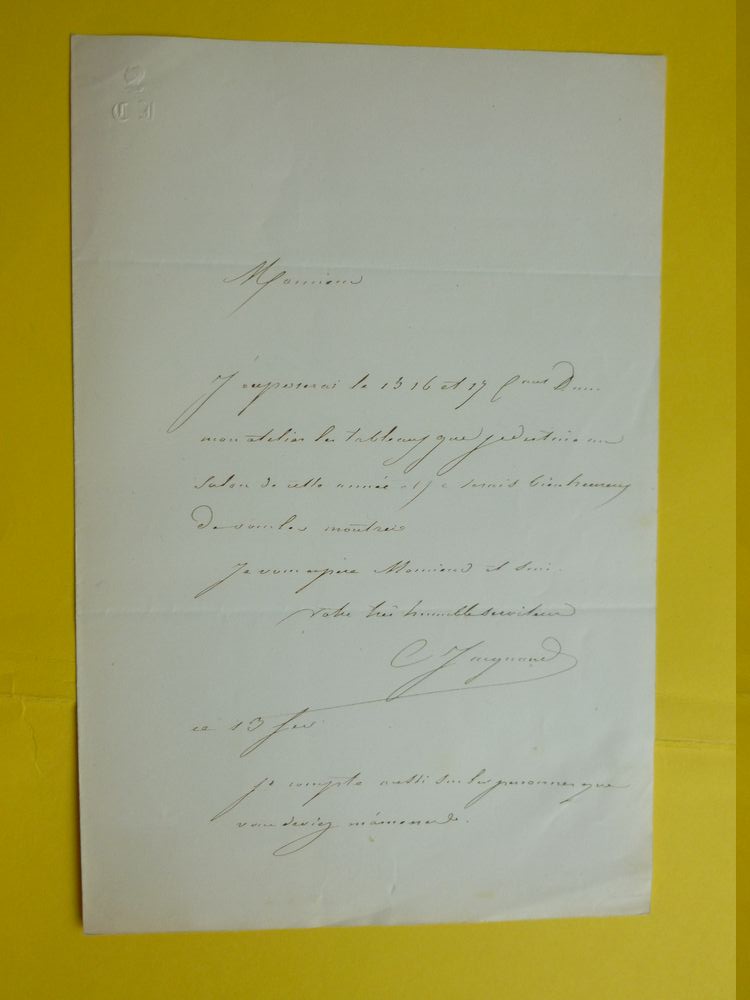 C J
Monsieur
J'exposerai le 15 16 et 17 Dans
mon atelier les tableaux que je destine au
Salon de cette année et je serais bien heureux
De vous les montrer
Je vous espère Monsieur et suis
votre très humble serviteur
C Jacquand
ce 13 fev
je compte aussi sur les personnes que
vous deviez m'amener.